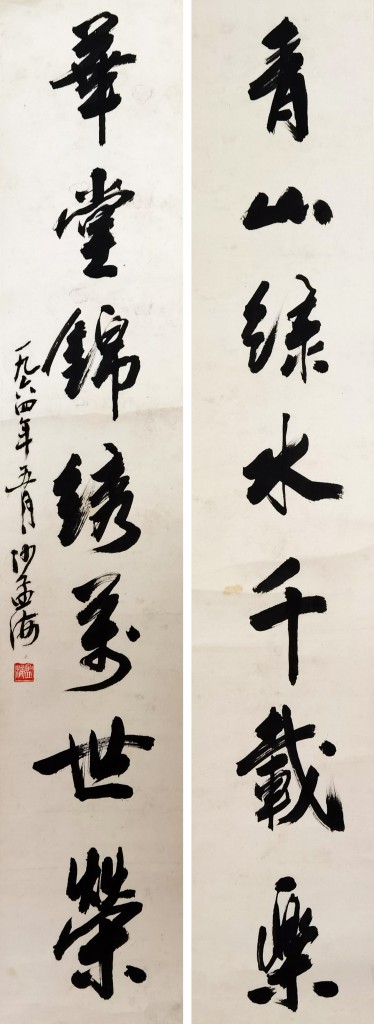 青山緑水千載樂
華堂錦綉萬世榮
一九六四年五月沙孟海